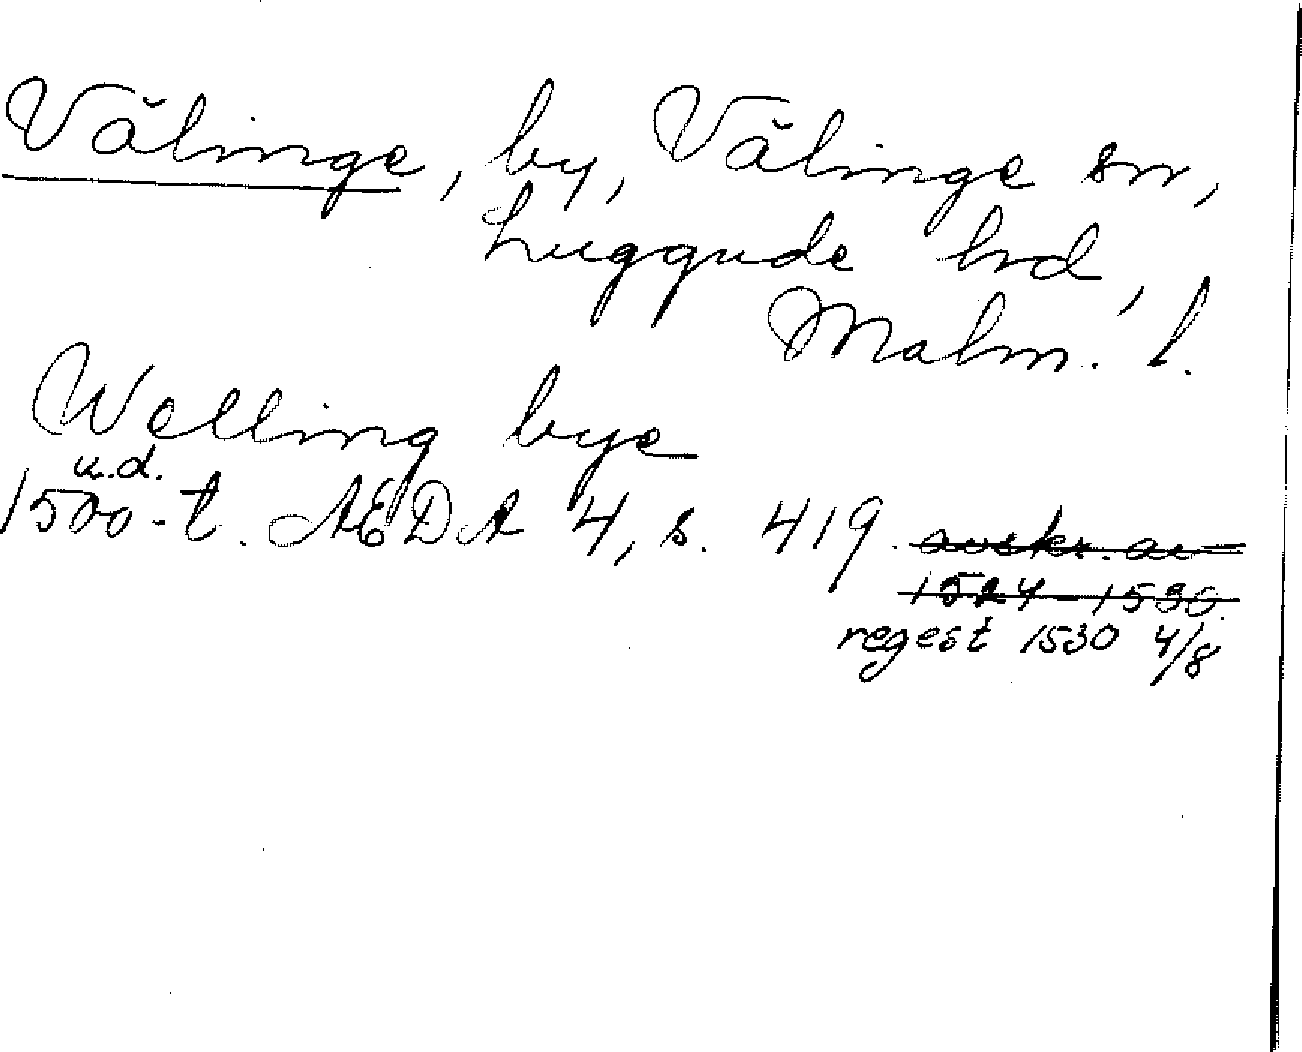 Välinge, by, Välinge sn,
Luggude hd,
Malm. l.
Welling bye
u.d.
1500-t. AEDA 4, s. 419. avskr. av
1524-1530.
regest 1530 4/8